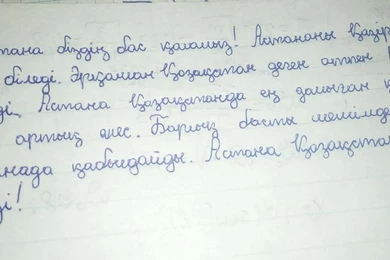 тана біздің бас қаламыз! Астананы қазір
біледі. Әрқашан Қазақстан деген атпен
ді. Астана Қазақстанда ең дамыған қ
артық емес. Барлық басты мәлімде
нада қабылдайды. Астана Қазақстан
ді!